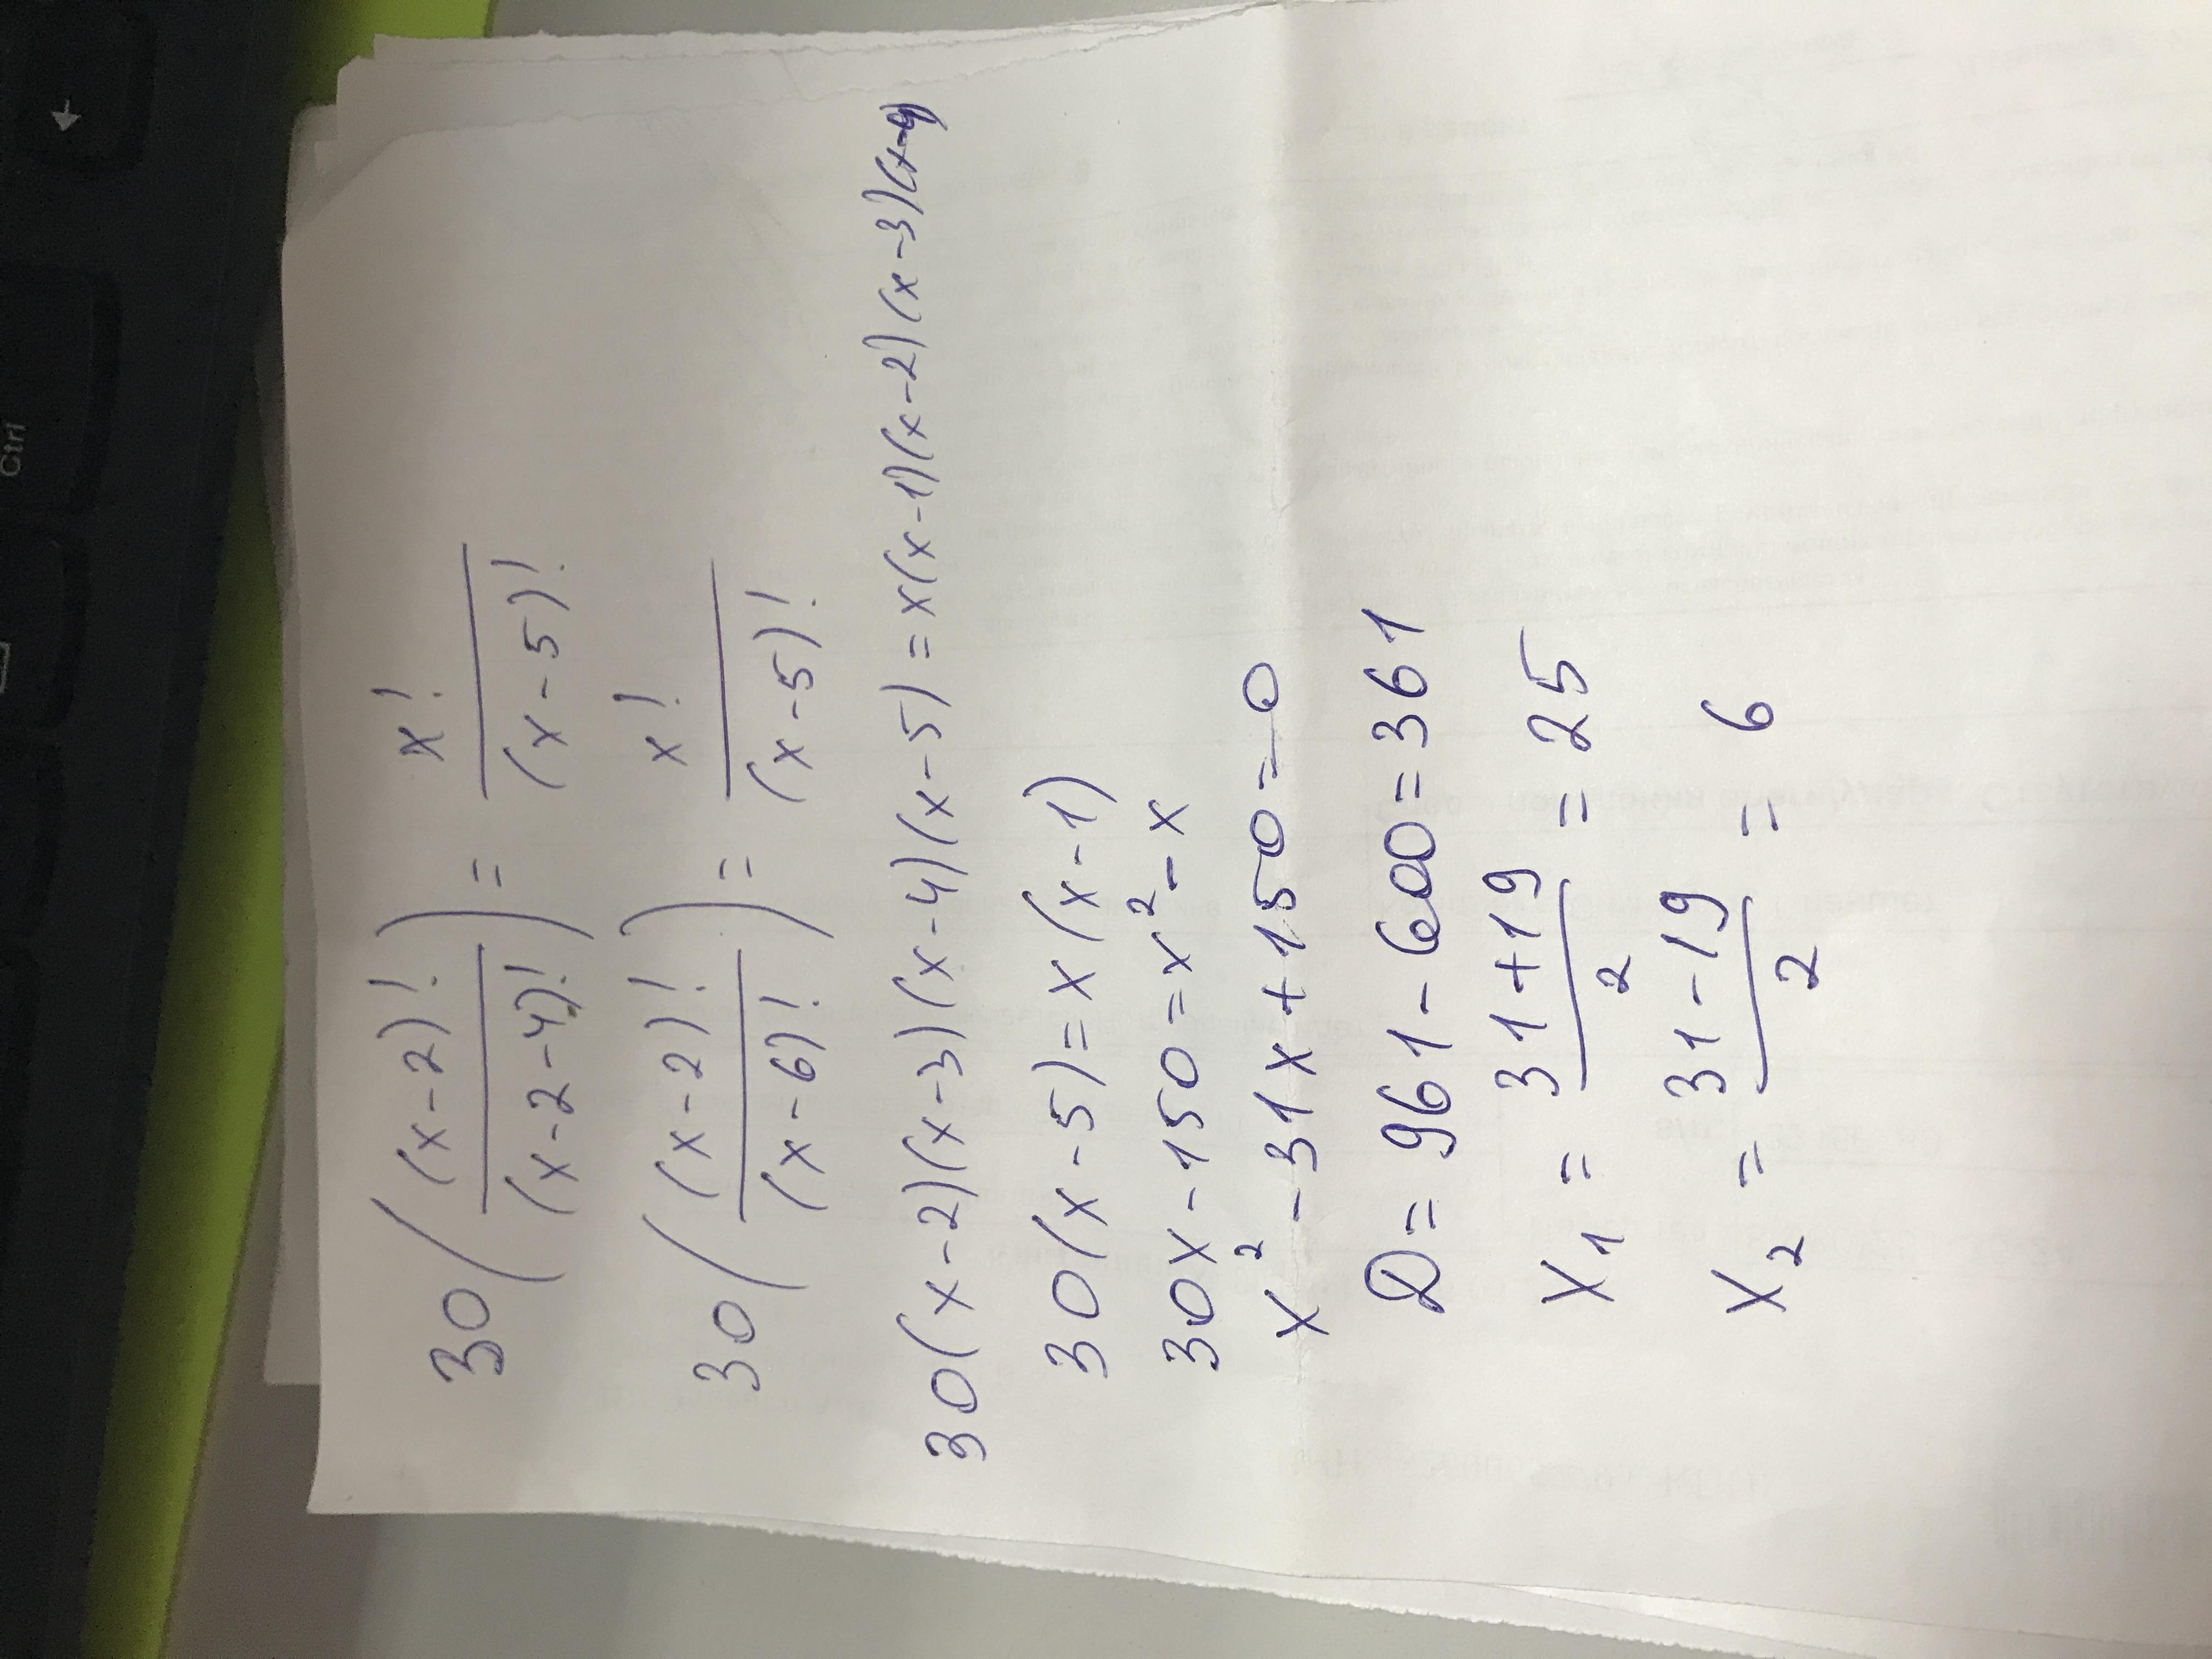 30((x-2)!/(x-2-4)!) = x!/(x-5)!
30((x-2)!/(x-6)!) = x!/(x-5)!
30(x-2)(x-3)(x-4)(x-5)=x(x-1)(x-2)(x-3)(x-4)
30(x-5)=x(x-1)
30x-150=x²-x
x²-31x+150=0
D=961-600=361
x₁ = (31+19)/2 = 25
x₂ = (31-19)/2 = 6
Ctrl